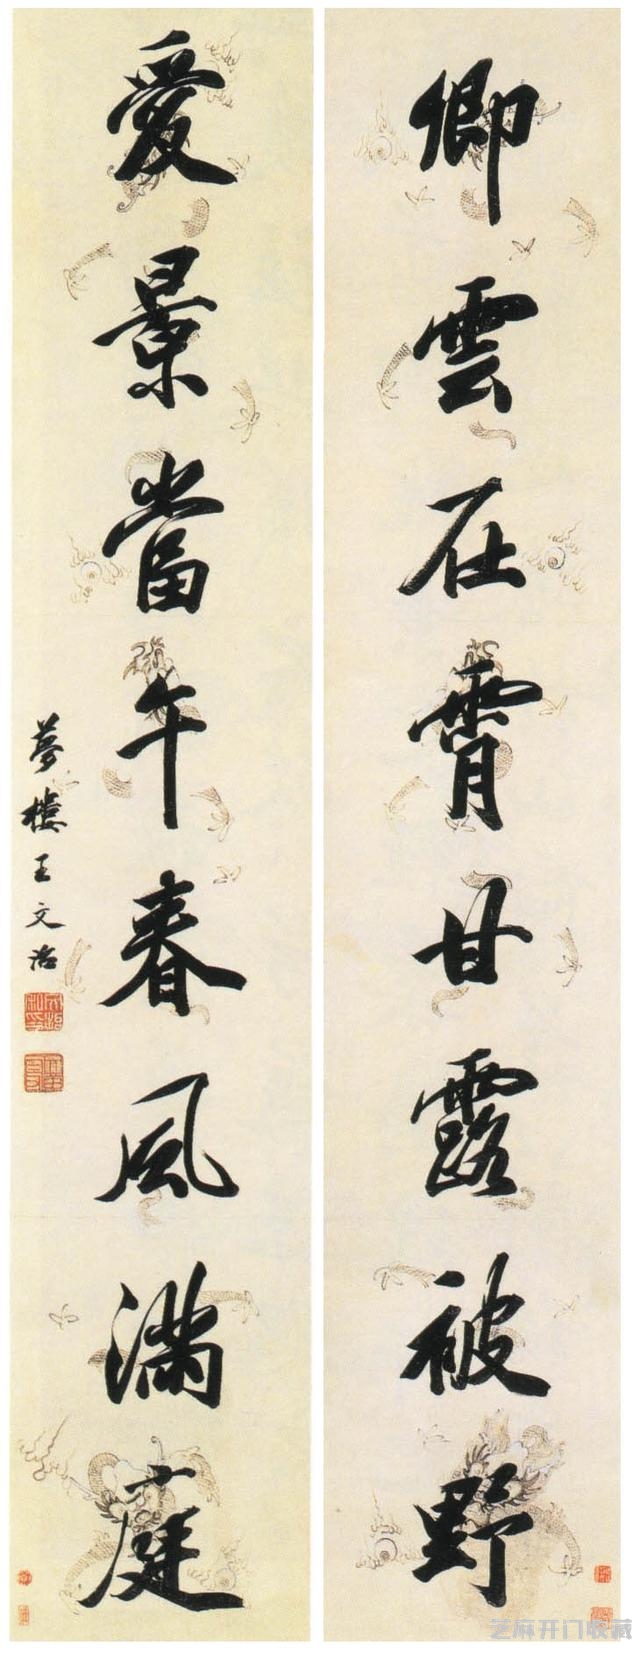 卿雲在霄甘露被野
愛景當午春風滿庭
夢樓王文治
芝麻开门收藏